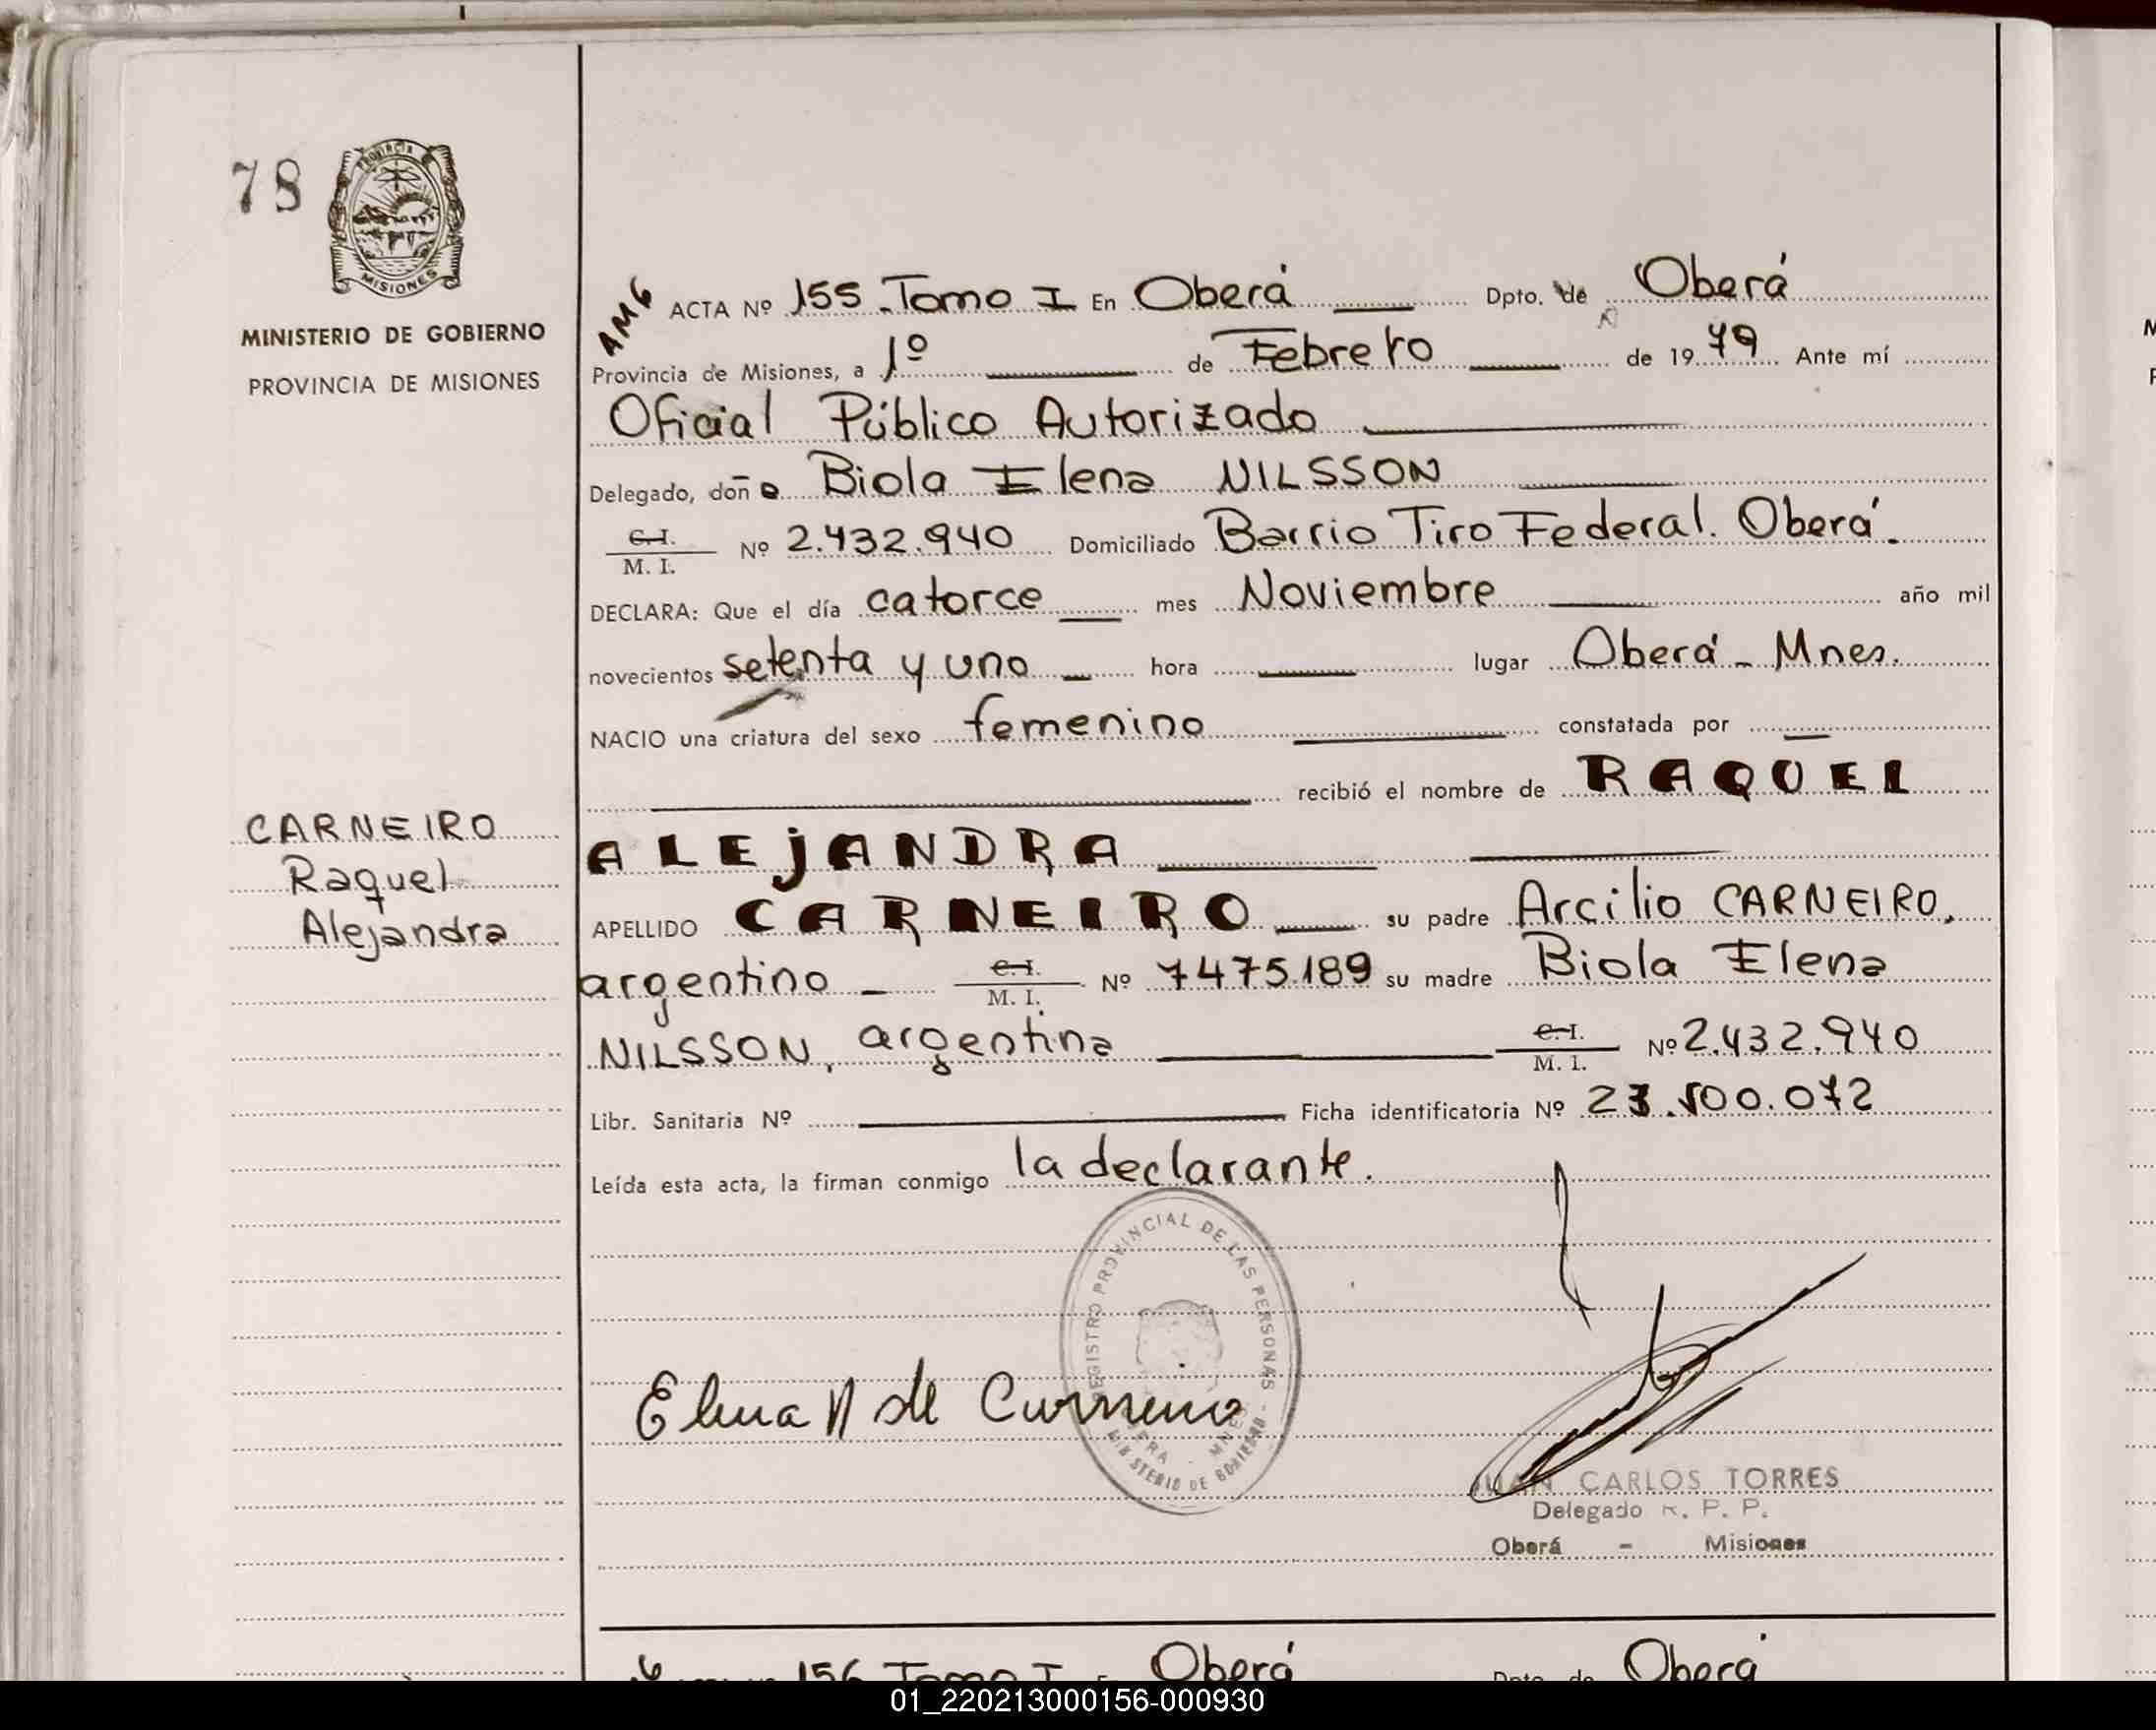 78
PROVINCIA DE
MISIONES
MINISTERIO DE GOBIERNO
PROVINCIA DE MISIONES
AMG
ACTA Nº 155. Tomo I En Oberá Dpto. de Oberá
Provincia de Misiones, a 1º de Febrero de 1979 Ante mí
Oficial Público Autorizado
Delegado, doña Biola Elena NILSSON
C.I.
M. I. Nº 2.432.940 Domiciliado Barrio Tiro Federal. Oberá.
DECLARA: Que el día catorce mes Noviembre año mil
novecientos setenta y uno hora lugar Oberá - Mnes.
NACIO una criatura del sexo femenino constatada por
recibió el nombre de RAQUEL
ALEJANDRA
APELLIDO CARNEIRO su padre Arcilio CARNEIRO,
argentino C.I.
M. I. Nº 7475.189 su madre Biola Elena
NILSSON, argentina C.I.
M. I. Nº 2.432.940
Libr. Sanitaria Nº Ficha identificatoria Nº
Leída esta acta, la firman conmigo la declarante.
CARNEIRO
Raquel
Alejandra
REGISTRO PROVINCIAL DE LAS PERSONAS -
MINISTERIO DE GOBIERNO -
OBERA - MNES.
Elena N de Carneiro
JUAN CARLOS TORRES
Delegado R. P. P.
Oberá - Misiones
156 Tomo I Oberá Dpto. de Oberá
01_220213000156-000930